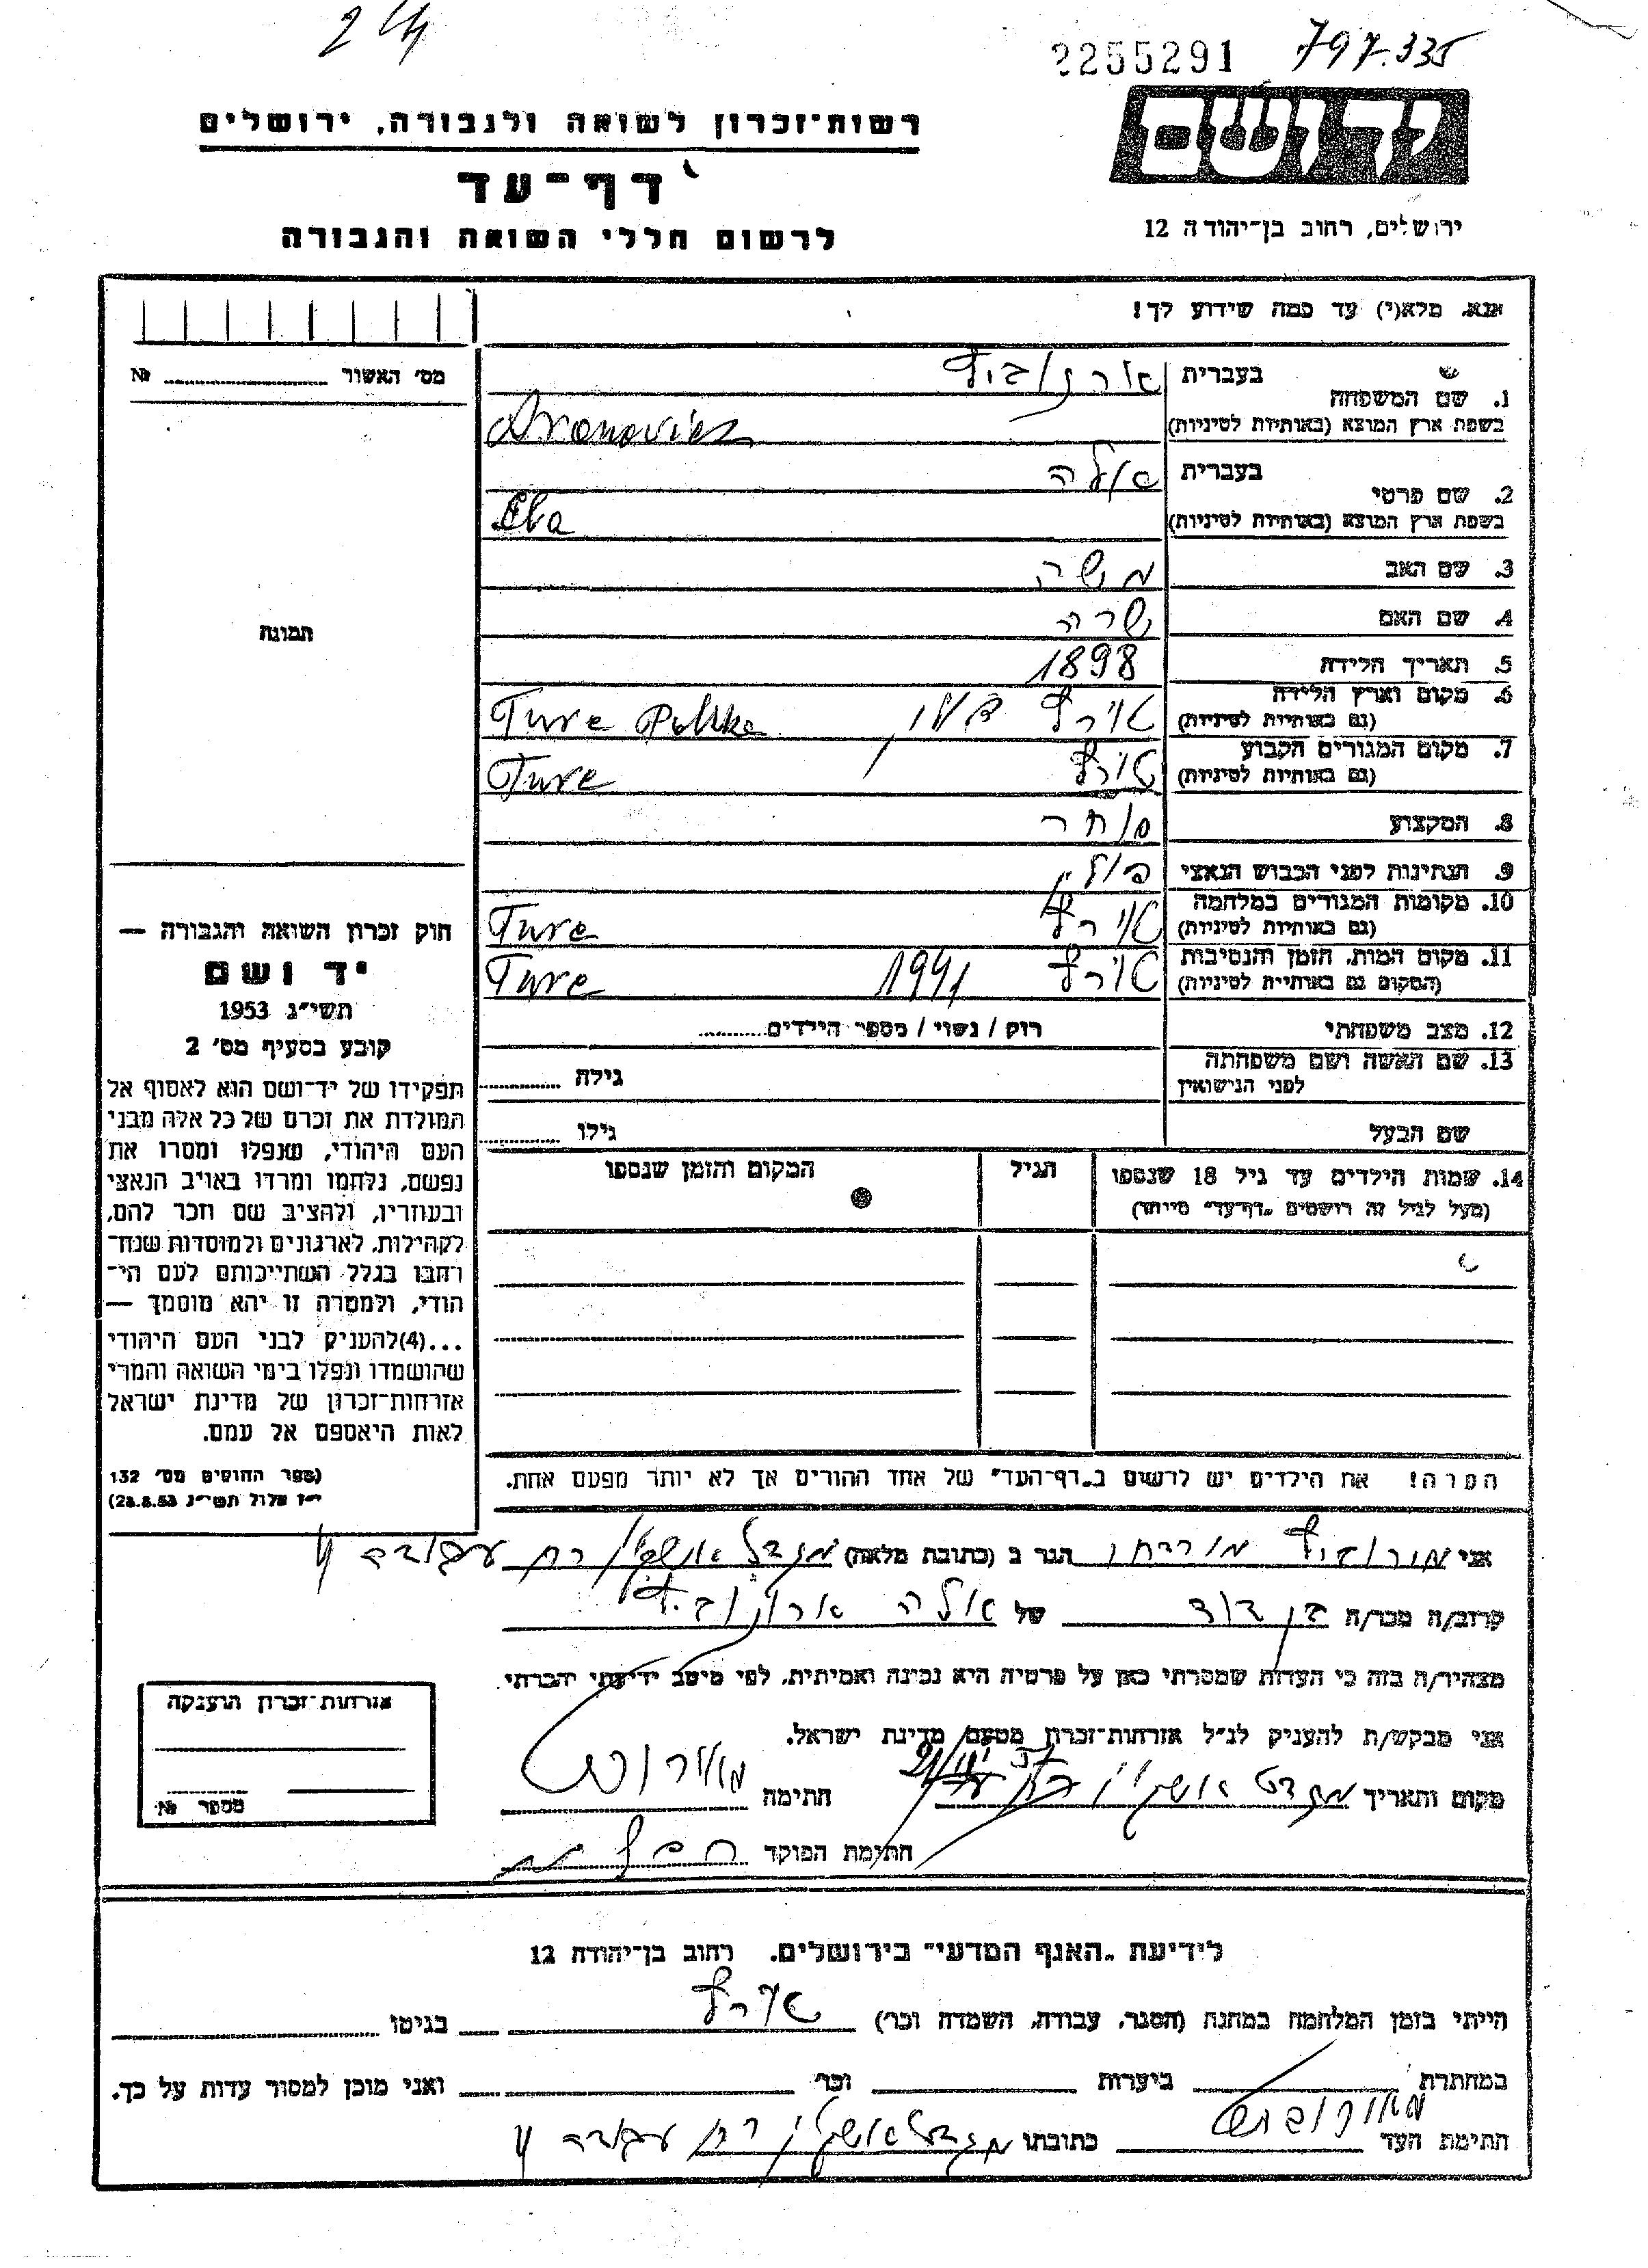 2255291 797.335
רשות־זכרון לשואה ולגבורה, ירושלים
יד ושם
דף־עד
לרשום חללי השואה והגבורה
ירושלים, רחוב בן־יהודה 12
אנא, מלא(י) עד כמה שידוע לך!
מס׳ האשור № ..........
1. שם המשפחה
בעברית
בשפת ארץ המוצא (באותיות לטיניות)
Aronovicz
2. שם פרטי
בעברית אלה
בשפת ארץ המוצא (באותיות לטיניות)
Ela
3. שם האב משה
4. שם האם שרה
תמונה
5. תאריך הלידה 1898
6. מקום וארץ הלידה
(גם באותיות לטיניות)
Ture Polska
7. מקום המגורים הקבוע
(גם באותיות לטיניות)
Ture
8. המקצוע סוחר
9. הנתינות לפני הכבוש הנאצי
10. מקומות המגורים במלחמה
(גם באותיות לטיניות)
Ture
11. מקום המות, הזמן והנסיבות
(המקום גם באותיות לטיניות)
1941 Ture
12. מצב משפחתי רוק / נשוי / מספר הילדים..........
13. שם האשה ושם משפחתה
לפני הנישואין
גילה ..........
שם הבעל גילו ..........
14. שמות הילדים עד גיל 18 שנספו
(מעל לגיל זה רושמים „דף־עד״ מיוחד)
הגיל
המקום והזמן שנספו
חוק זכרון השואה והגבורה —
יד ושם
תשי״ג 1953
קובע בסעיף מס׳ 2
תפקידו של יד־ושם הוא לאסוף אל
המולדת את זכרם של כל אלה מבני
העם היהודי, שנפלו ומסרו את
נפשם, נלחמו ומרדו באויב הנאצי
ובעוזריו, ולהציב שם וזכר להם,
לקהילות, לארגונים ולמוסדות שנח־
רחבו בגלל השתייכותם לעם הי־
הודי, ולמטרה זו יהא מוסמך —
...(4)להעניק לבני העם היהודי
שהושמדו ונפלו בימי השואה והמרי
אזרחות־זכרון של מדינת ישראל
לאות היאספם אל עמם.
(ספר החוקים מס׳ 132
י״ז אלול תשי״ג 28.8.53)
הערה! את הילדים יש לרשום ב„דף־העד״ של אחד ההורים אך לא יותר מפעם אחת.
אני הגר ב (כתובת מלאה)
קרוב/ה מכר/ה בן דוד של אלה
מצהיר/ה בזה כי העדות שמסרתי כאן על פרטיה היא נכונה ואמיתית, לפי מיטב ידיעתי והכרתי.
אני מבקש/ת להעניק לנ״ל אזרחות־זכרון מטעם מדינת ישראל.
מקום ותאריך חתימה
חתימת הפוקד
אזרחות־זכרון הוענקה
מספר №
לידיעת „האגף המדעי״ בירושלים, רחוב בן־יהודה 12
הייתי בזמן המלחמה במחנה (הסגר, עבודה, השמדה וכו׳) בגיטו
במחתרת ביערות וכו׳ ואני מוכן למסור עדות על כך.
חתימת העד כתובתו